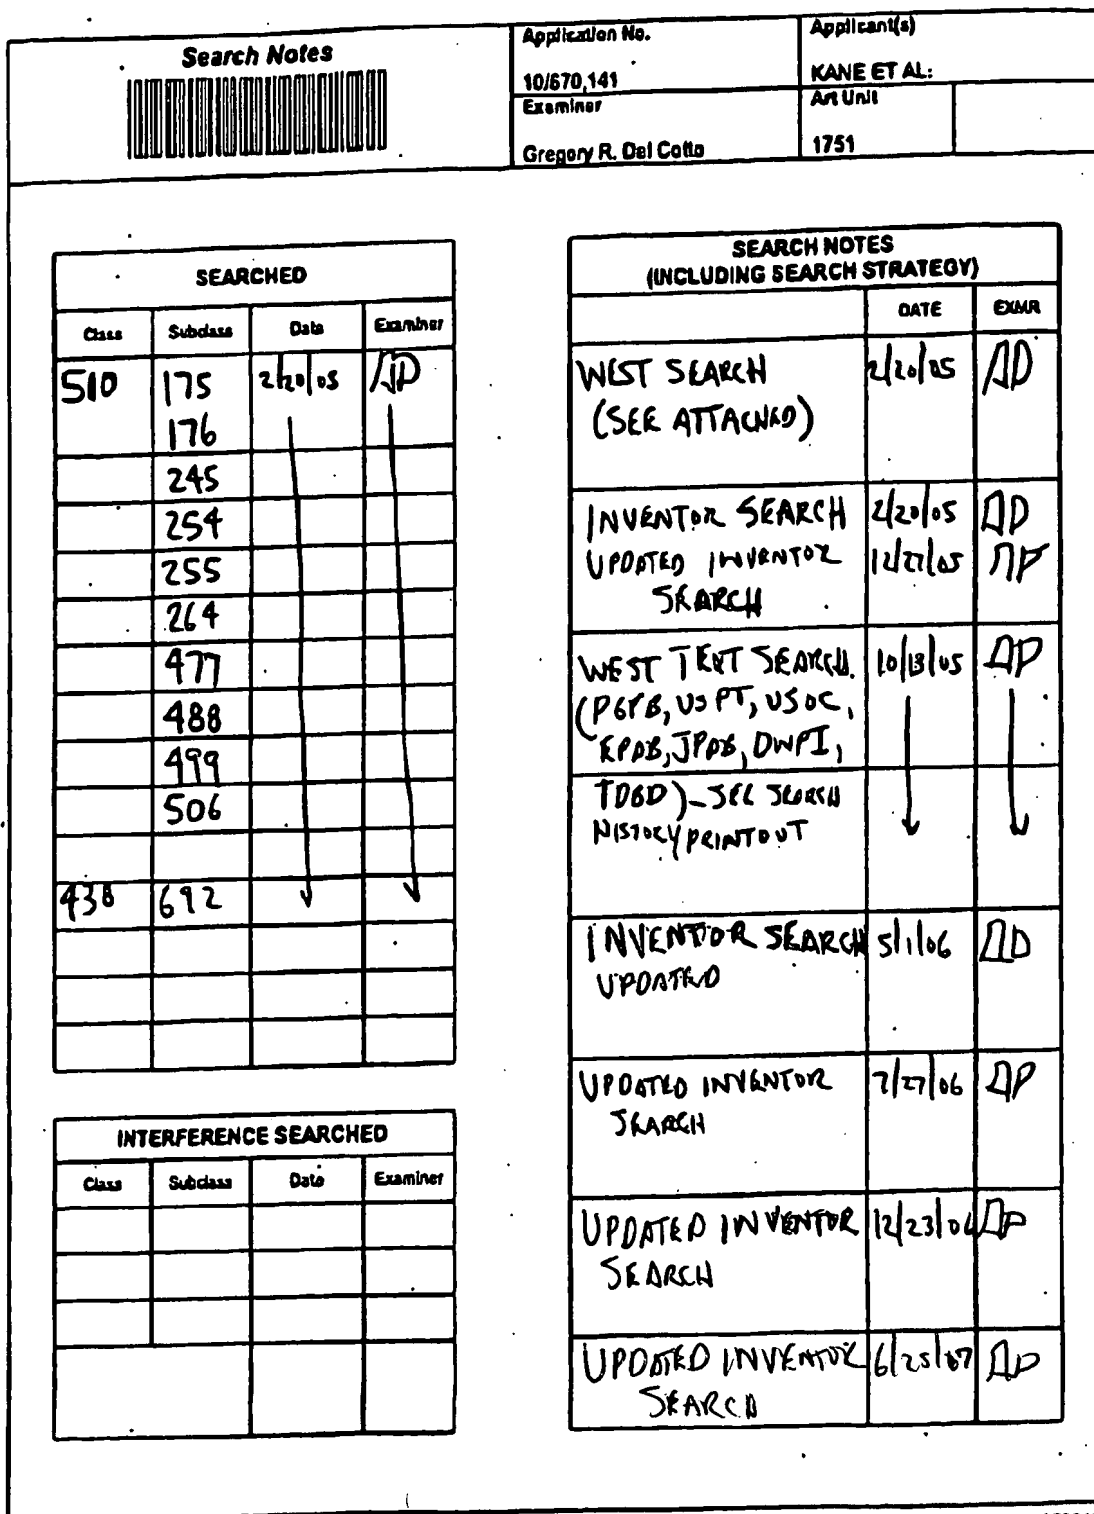 Search Notes
Application No.
10/670,141
Applicant(s)
KANE ET AL.
Examiner
Gregory R. Del Cotto
Art Unit
1751
SEARCHED
Class Subclass Date Examiner
510 175 2/20/05 GD
176
245
254
255
264
477
488
499
506
438 692
INTERFERENCE SEARCHED
Class Subclass Date Examiner
SEARCH NOTES
(INCLUDING SEARCH STRATEGY)
DATE EXMR
WEST SEARCH 2/20/05
(SEE ATTACHED)
INVENTOR SEARCH 2/20/05
UPDATED INVENTOR 12/27/05
SEARCH
WEST TEXT SEARCH 10/13/05
(PGPB, USPT, USOC,
EPAB, JPAB, DWPI,
TDBD) - SEE SEARCH
HISTORY PRINTOUT
INVENTOR SEARCH 5/1/06
UPDATED
UPDATED INVENTOR 7/27/06
SEARCH
UPDATED INVENTOR 12/23/06
SEARCH
UPDATED INVENTOR 6/25/07
SEARCH